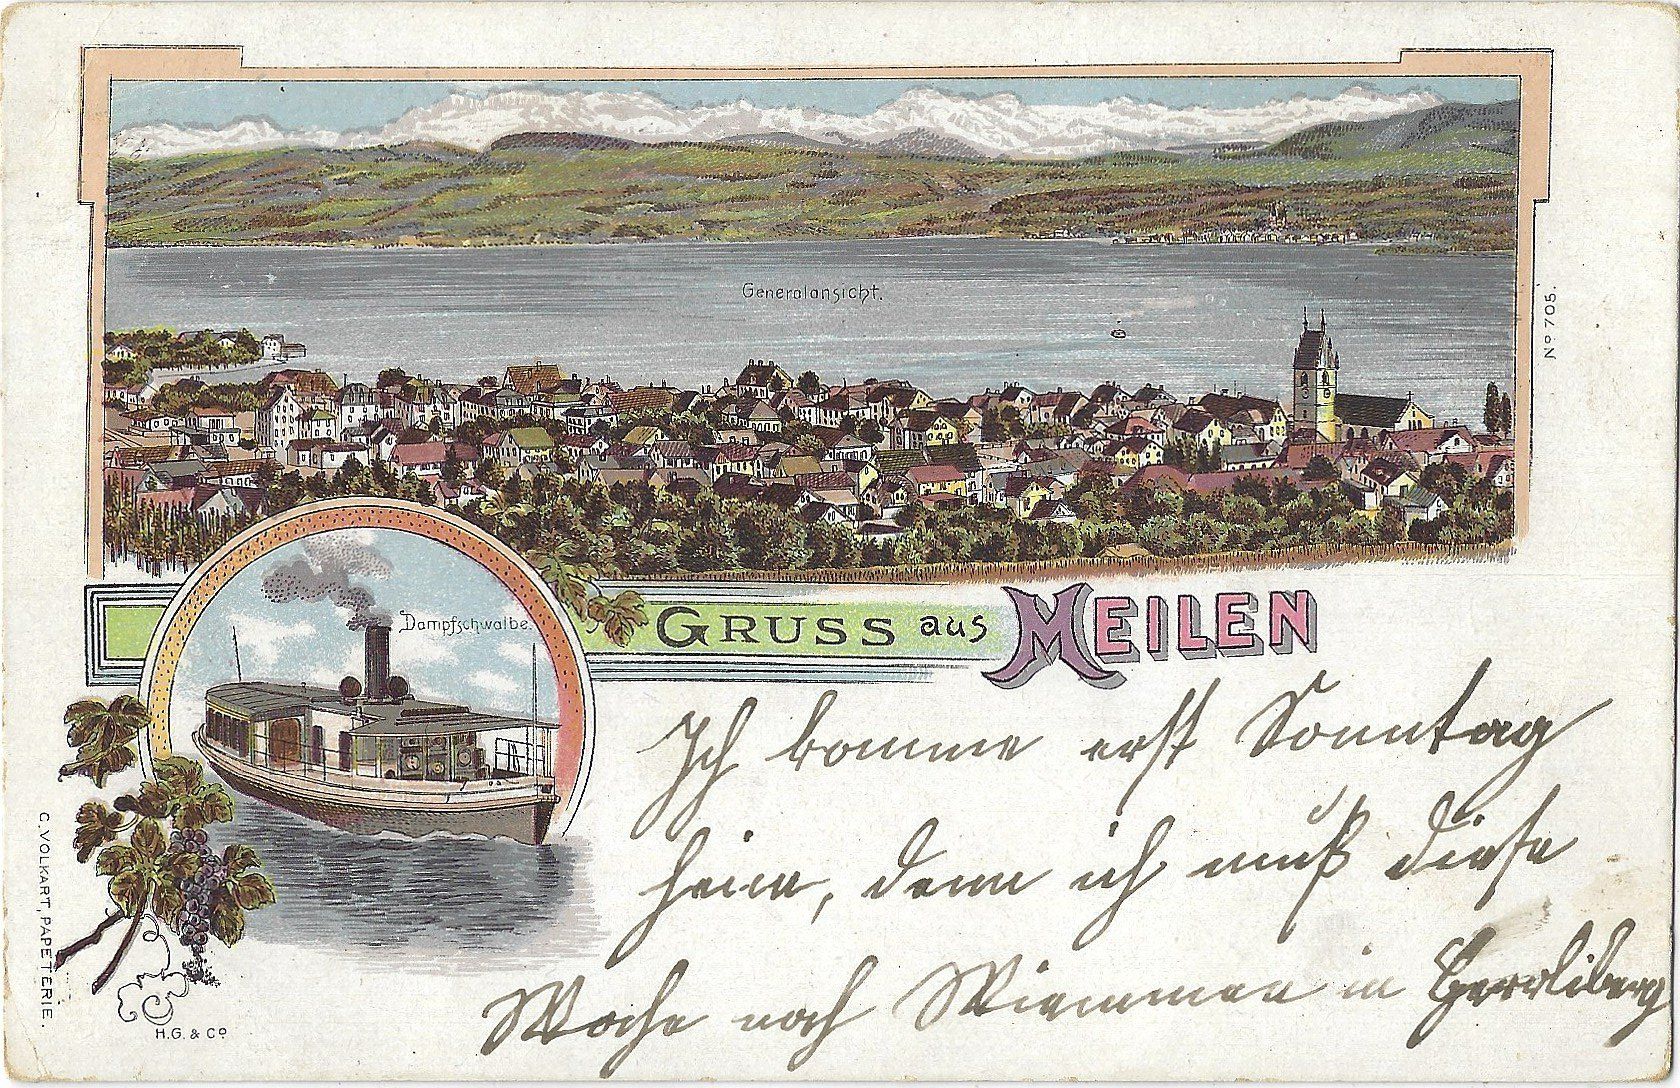 Generalansicht.
No 705.
Dampfschwalbe.
GRUSS aus MEILEN
Ich komme erst Sonntag
heim, denn ich muß diese
Woche noch in Herrliberg
C. VOLKART, PAPETERIE.
H.G. & Co